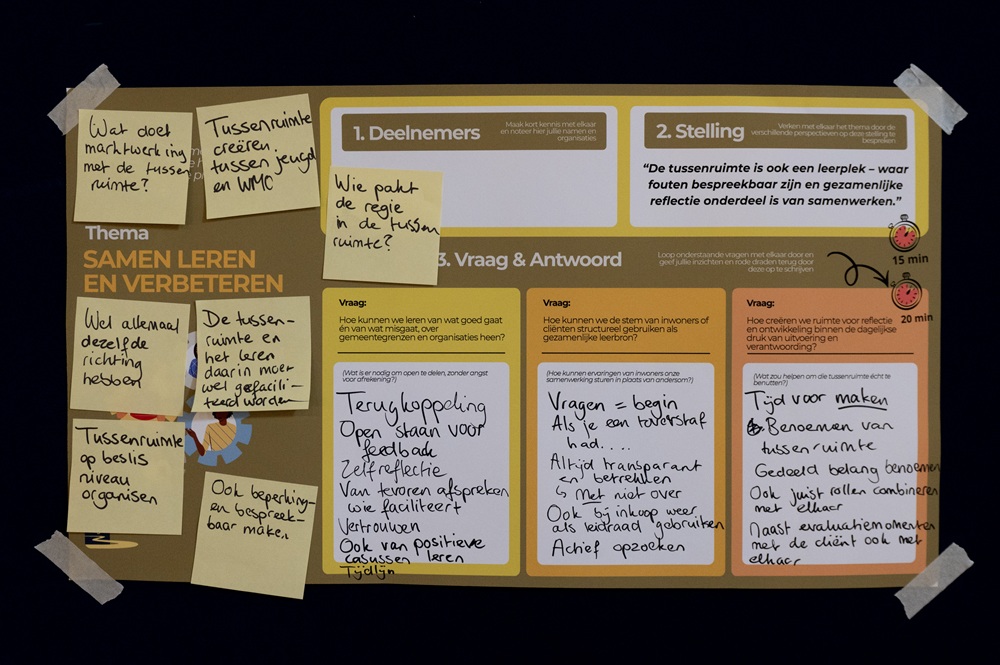 Wat doet
marktwerking
met de tussen
ruimte?
Tussenruimte
creëren
tussen jeugd
en WMO
Wie pakt
de regie
in de tussen
ruimte?
1. Deelnemers
Maak kort kennis met elkaar
en noteer hier jullie namen en
organisaties
2. Stelling
Verken met elkaar het thema door de
verschillende perspectieven op deze stelling te
bespreken
“De tussenruimte is ook een leerplek – waar
fouten bespreekbaar zijn en gezamenlijke
reflectie onderdeel is van samenwerken.”
15 min
Thema
SAMEN LEREN
EN VERBETEREN
3. Vraag & Antwoord
Loop onderstaande vragen met elkaar door en
geef jullie inzichten en rode draden terug door
deze op te schrijven
20 min
Wel allemaal
dezelfde
richting
hebben
De tussen-
ruimte en
het leren
daarin moet
wel gefacili-
teerd worden
Tussenruimte
op beslis
niveau
organisen
Ook beperking-
en bespreek-
baar maken
Vraag:
Hoe kunnen we leren van wat goed gaat
én van wat misgaat, over
gemeentegrenzen en organisaties heen?
(Wat is er nodig om open te delen, zonder angst
voor afrekening?)
Terugkoppeling
Open staan voor
feedback
Zelfreflectie
Van tevoren afspreken
wie faciliteert
Vertrouwen
Ook van positieve
casussen leren
Tijdlijn
Vraag:
Hoe kunnen we de stem van inwoners of
cliënten structureel gebruiken als
gezamenlijke leerbron?
(Hoe kunnen ervaringen van inwoners onze
samenwerking sturen in plaats van andersom?)
Vragen = begin
Als je een toverstaf
had....
Altijd transparant
en betrekken
↳ met niet over
Ook bij inkoop weer
als leidraad gebruiken
Actief opzoeken
Vraag:
Hoe creëren we ruimte voor reflectie
en ontwikkeling binnen de dagelijkse
druk van uitvoering en
verantwoording?
(Wat zou helpen om die tussenruimte écht te
benutten?)
Tijd voor maken
Benoemen van
tussenruimte
Gedeeld belang benoemen
Ook juist rollen combineren
met elkaar
Naast evaluatiemomenten
met de cliënt ook met
elkaar